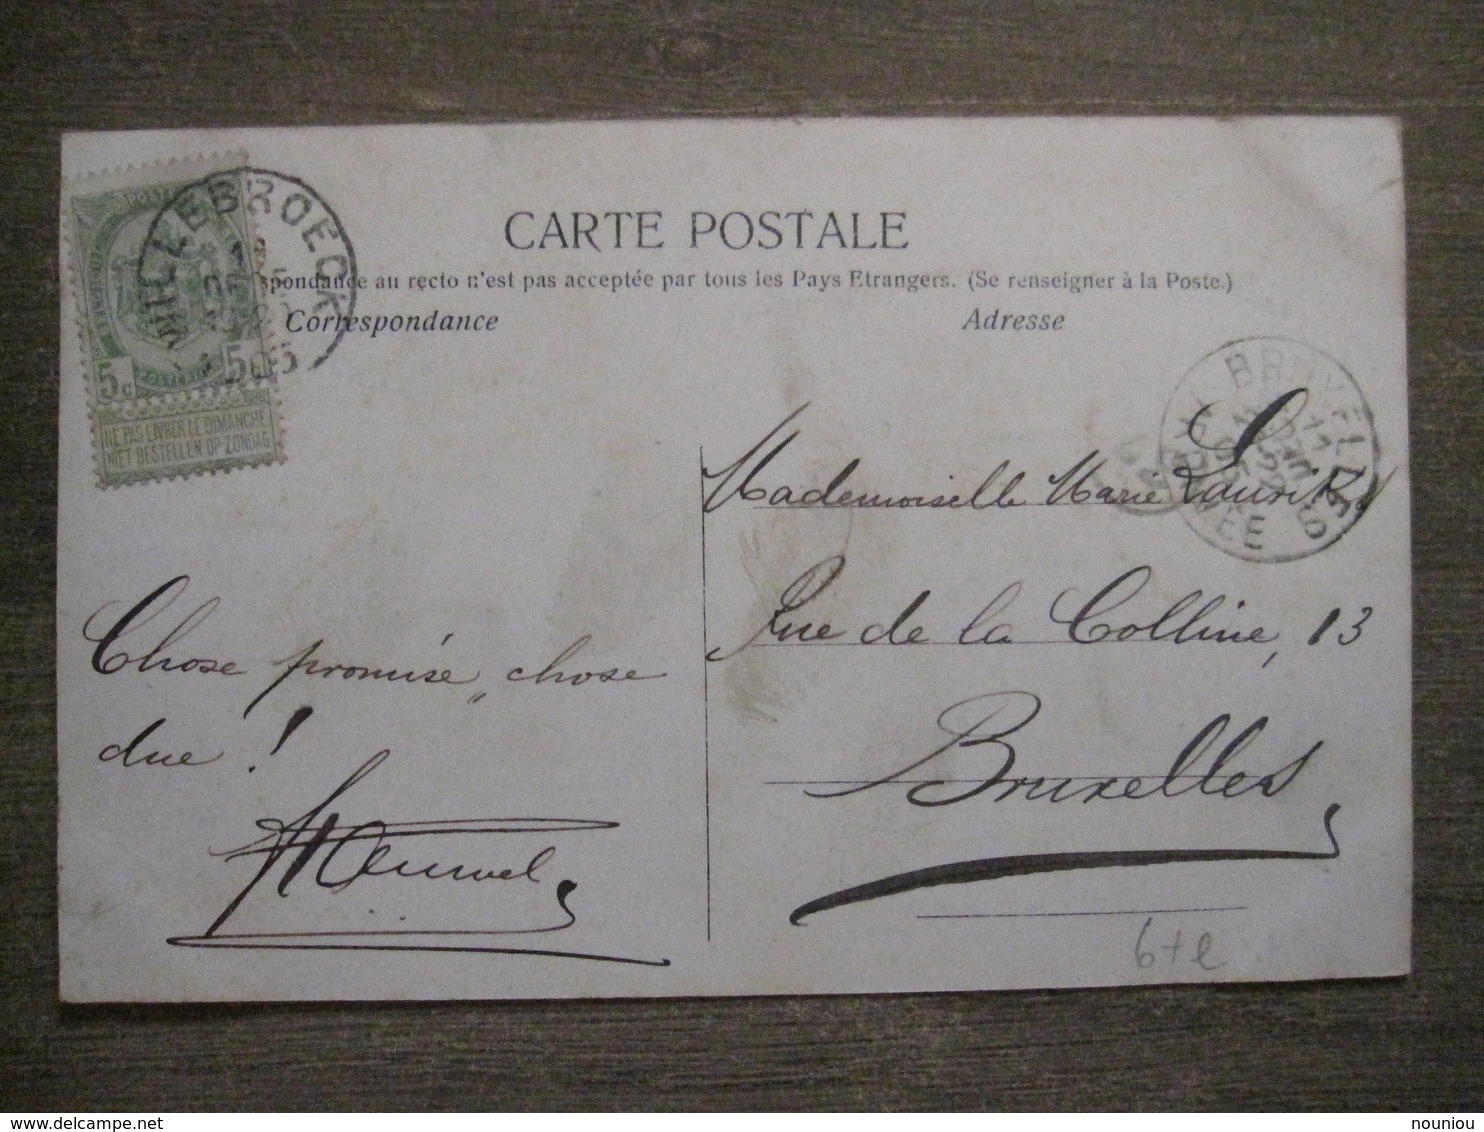 WILLEBROECK
CARTE POSTALE
spondance au recto n'est pas acceptée par tous les Pays Etrangers. (Se renseigner à la Poste.)
Correspondance
Adresse
5c 5
NE PAS LIVRER LE DIMANCHE
NIET BESTELLEN OP ZONDAG
BRUXELLES
ARRIVÉE
Mademoiselle Marie
Rue de la Colline, 13
Bruxelles
Chose promise, chose
due !
6+e
nouniou